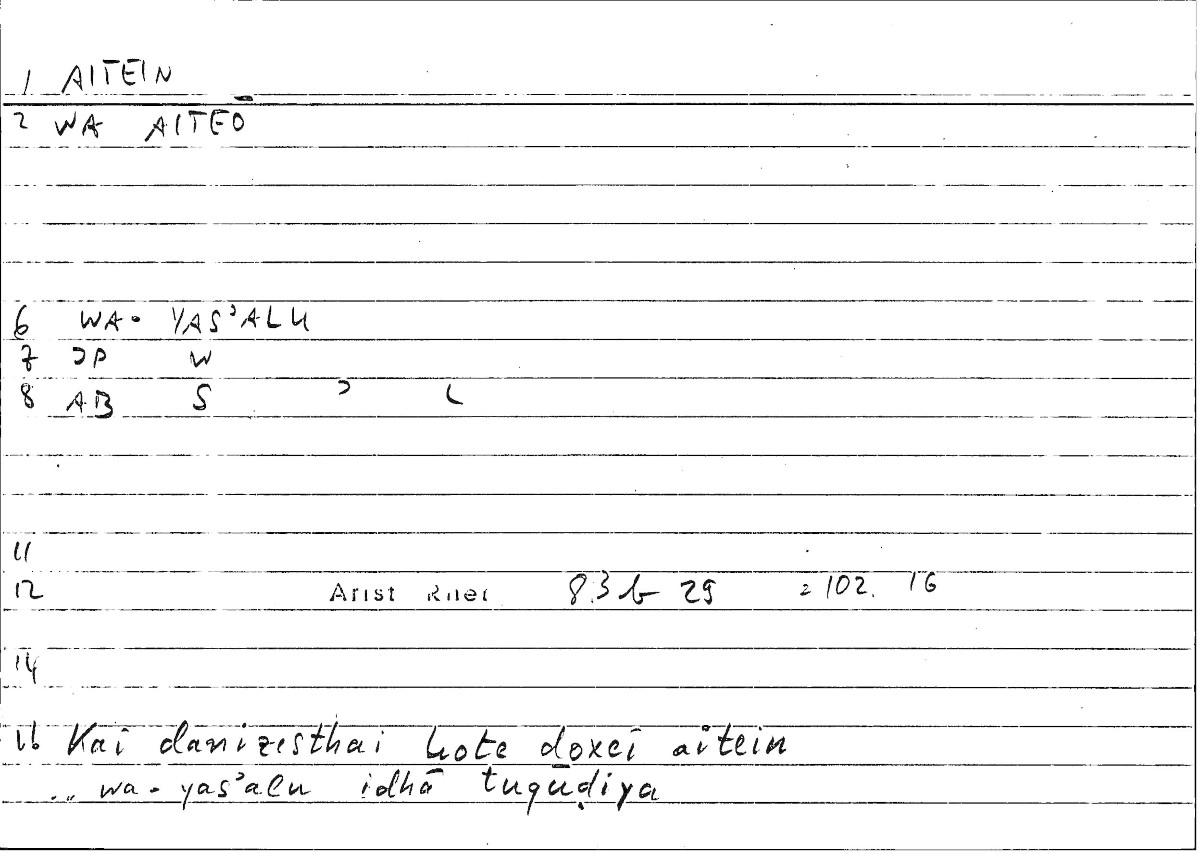 1 AITEIN
2 WA AITEŌ
6 WA- YAS'ALU
7 JP W
8 AB S ʾ L
11
12 Arist Rhet 83b 29 = 102. 16
14
16 Kai danizesthai hote doxei aitein
... wa- yas'alu idhā tuqūḍiya